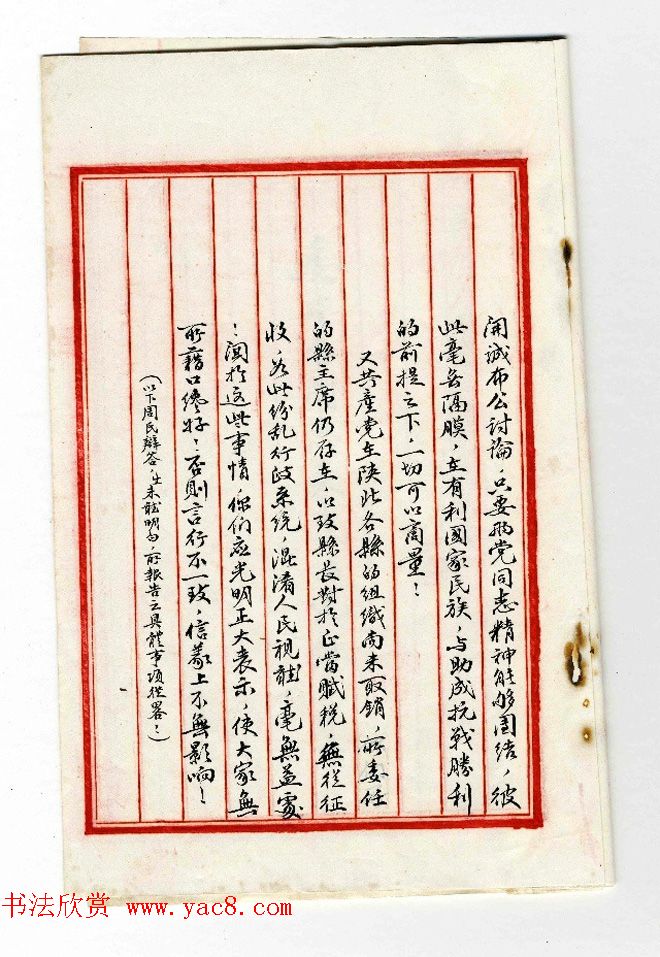 開誠布公討論，只要两党同志精神能够团结，彼
此毫無隔膜，在有利國家民族，与助成抗戰勝利
的前提之下，一切可以商量！
又共產党在陝北各縣的组織尚未取銷，所委任
的縣主席仍存在，以致縣長對於正當賦稅，無從征
收，为此纷乱行政系统，混淆人民視聽，毫無益處
！関於这些事情，你们应光明正大表示，使大家無
所藉口才好！否則言行不一致，信義上不無影响！
（以下周氏辯答，生未能明白，所報告之具體事项從畧！）
书法欣赏 www.yac8.com